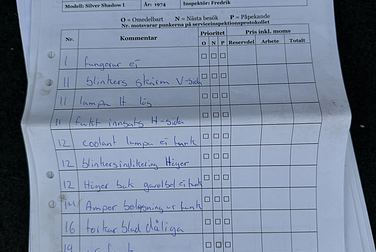 Modell: Silver Shadow I År: 1974 Inspektör: Fredrik
O = Omedelbart N = Nästa besök P = Påpekande
Nr. motsvarar punkerna på serviceinspektionsprotokollet
Prioritet Pris inkl. moms
Nr. Kommentar O N P Reservdel Arbete Totalt
1 fungerar ej
11 blinkers skärm V-sida
11 lampa H lös
11 fukt innsats H-sida
12 coolant lampa ej funk
12 blinkersindikering Höger
12 Höger bak
Amper belysning ur funk
16 torkarblad dåliga
19